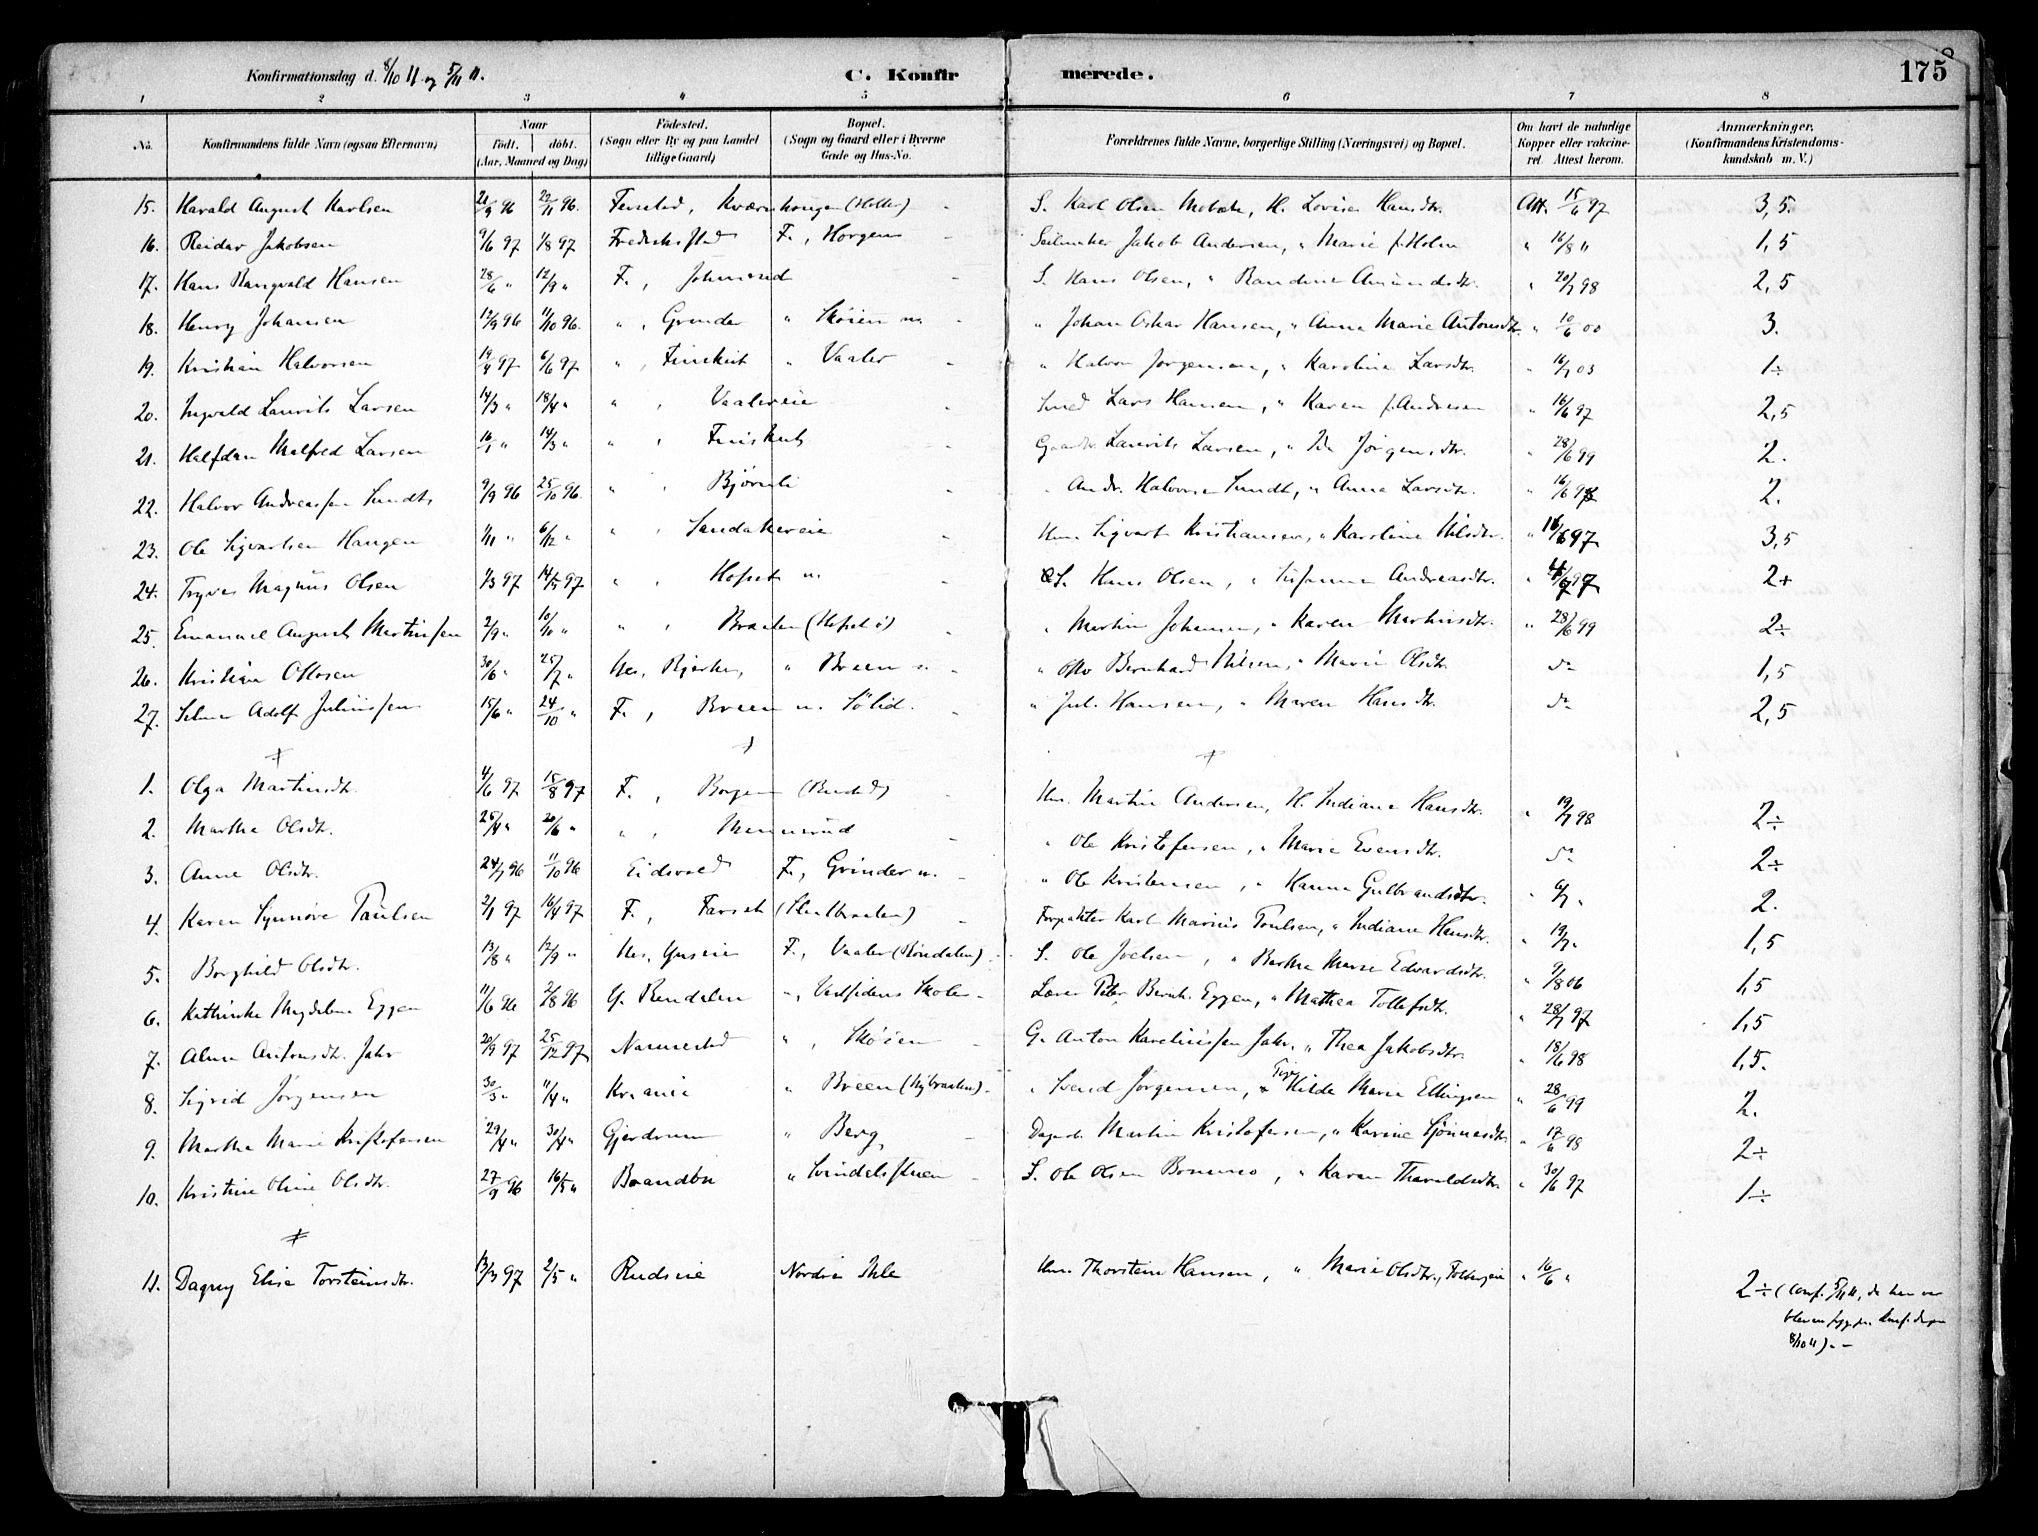 Konfirmationsdag d. 8/10 11 og 5/11 11. C. Konfirmerede. 175
1 2 3 4 5 6 7 8
No. Konfirmandens fulde Navn (ogsaa Efternavn) Naar Födt. döbt. (Aar, Maaned og Dag) Födested. (Sogn eller By og paa Landet tillige Gaard) Bopæl. (Sogn og Gaard eller i Byerne Gade og Hus-No. Forældrenes fulde Navne, borgerlige Stilling (Næringsvei) og Bopæl. Om havt de naturlige Kopper eller vakcineret. Attest herom. Anmærkninger. (Konfirmandens Kristendomskundskab m. V.)
15. Harald August Karlsen 21/9 96 22/11 96. Fenstad, S. Karl Olsen H. Lovise Hansdtr. Att. 15/6 97 3,5.
16. Reidar Jakobsen 9/6 97 1/8 97 Frederikstad F., Horgen Seilmaker Jakob Andersen, " Marie f. Holm " 16/8 " 1,5
17. Hans Rangvald Hansen 28/6 " 12/9 " F., Johnsrud S. Hans Olsen, " Randine Amundsdtr. " 20/7 98 2,5
18. Henry Johansen 12/9 96 11/10 96. " , Grinder " Skøien n. " Johan Oskar Hansen, " Anna Marie Antonsdtr. " 10/6 00 3.
19. Kristian Halvorsen 19/4 97 6/6 97 " , Finskut " Vaaler " Halvor Jørgensen, " Karoline Larsdtr. " 16/7 03 1÷
20. Ingvald Laurits Larsen 14/3 " 18/4 " " , Vaalereie Smed Lars Hansen, " Karen f. Andresen " 16/6 97 2,5
21. Halfdan Malfred Larsen 16/1 " 14/3 " " , Finskut Gaardbr. Laurits Larsen, " Ida Jørgensdtr. " 28/6 99 2.
22. Halvor Andreassen Sundt 9/9 96 25/10 96. " , Bjørnli " Andr. Halvorsen Sundt, " Anna Larsdtr. " 16/6 98 2.
23. Ole Sigvartsen Haugen 1/11 " 6/12 " " , Sandakereie Hm. Sigvart Kristiansen, " Karoline Nilsdtr. " 16/6 97 3,5
24. Trygve Magnus Olsen 1/3 97 14/5 97 " , Hofset n. S. Hans Olsen, " Susanne Andreasdtr. " 97 2+
25. Emanuel August Martinsen 2/9 " 10/10 " " , Braaten (Hofset ø) " Martin Johansen, " Karen Martinsdtr. " 28/6 99 2÷
26. Kristian Ottosen 30/6 " 25/7 " Nes, Bjerke, " Breen n. " Otto Bernhard Nilsen, " Marie Olsdtr. do 1,5
27. Selmer Adolf Juliussen 15/6 " 24/10 " F., Breen n. Sølid. " Jul. Hansen, " Maren Hansdtr. do 2,5
1. Olga Martinsdtr. 4/6 97 15/8 97 F., Borgen Hm. Martin Andersen, H. Indiane Hansdtr. " 19/7 98 2÷
2. Martha Olsdtr. 25/4 " 20/6 " " , Mennerud " Ole Kristofersen, " Marie Evensdtr. do 2÷
3. Anne Olsdtr. 24/7 96 11/10 96 Eidsvold F., Grinder n. " Ole Kristensen, " Hanna Gulbrandsdtr. " 2.
4. Karen Synnøve Paulsen 2/1 97 16/4 97 F., Farset Forpakter Karl Marius Poulsen, " Indiane Hansdtr. " 19/7 " 1,5
5. Borghild Olsdtr. 13/8 " 12/9 " Nes, F., Vaaler (Røndalen) S. Ole Joelsen, " Berthe Marie Edvardsdtr. " 9/8 06 1,5
6. Kathinka Magdalena Eggen 11/6 96 2/8 96 Y. Rendalen " , Vestsidens Skole Lærer Peter Bernh. Eggen, " Mathea Tollefsdtr. " 28/7 97 1,5
7. Alma Antonsdtr. Jahr 20/9 97 25/12 97 Nannestad " , Skøien G. Anton Kareliussen Jahr, " Thea Jakobsdtr. " 18/6 98 1,5.
8. Sigrid Jørgensen 30/3 " 11/4 " Kr.ania " Breen (Nybraaten) " Svend Jørgensen, Hilde Marie Ellingsen " 28/6 99 2.
9. Martha Marie Kristofersen 29/4 " 30/4 " Gjerdrum " Berg, Dagarb. Martin Kristofersen, " Karine Sjønnesdtr. " 17/6 98 2÷
10. Kristine Oline Olsdtr. 27/9 96 16/5 " Brandbu " Svindalsstuen S. Ole Olsen " Karen Tharaldsdtr. " 30/6 97 1÷
11. Dagny Elise Torsteinsdtr. 13/3 97 2/5 " Rudseie Nordre Hm. Thorstein Hansen, " Marie Olsdtr., " 16/6 " 2÷ (Conf. 5/11 11, da hun var
bleven syg paa Konf.dagen
8/10 11).-